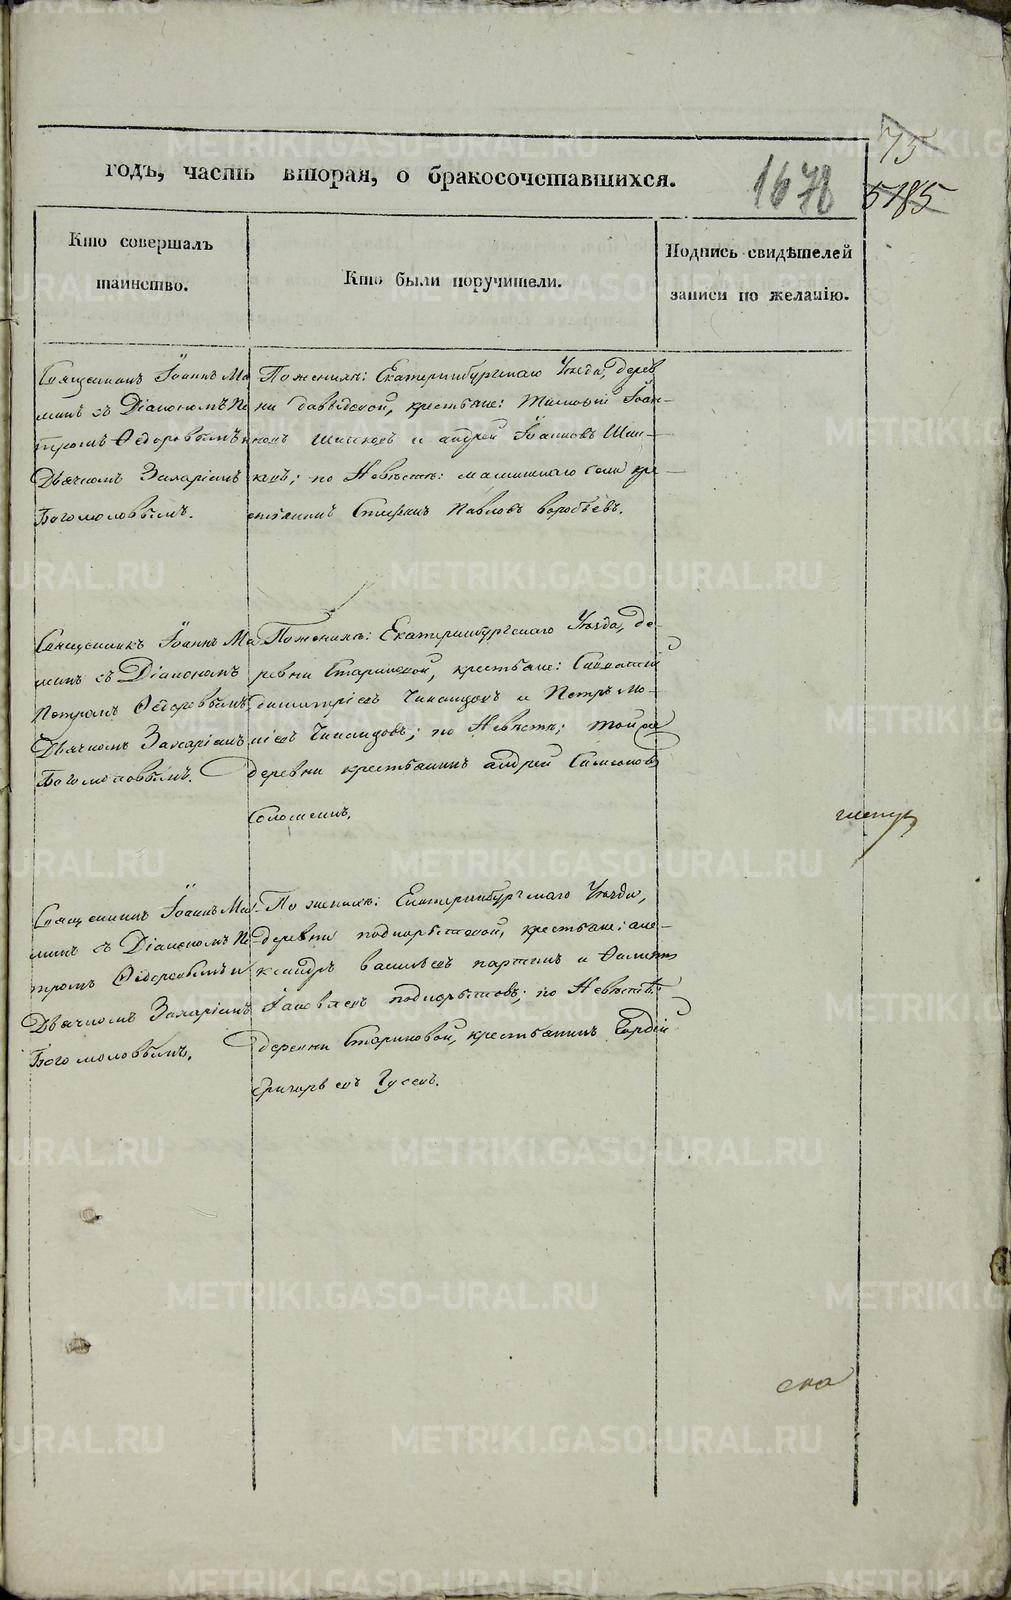 годъ, часть вторая, о бракосочетавшихся.
1678
75
5185
Кто совершалъ
таинство.
Кто были поручители.
Подпись свидѣтелей
записи по желанію.
Священникъ Іоаннъ Ма
минъ съ Діакономъ Пе
тромъ Ѳедоровымъ и
Дьячкомъ Захаріемъ
Богомоловымъ.
По женихѣ: Екатеринбургскаго Уѣзда, дерев
ни Давыдовой, крестьяне: Іоан-
новъ и Андрей Іоанновъ
по Невѣстѣ: села кре
стьянинъ Стефанъ Павловъ Воробьевъ.
Священникъ Іоаннъ Ма
минъ съ Діакономъ
Петромъ Ѳедоровымъ
Дьячкомъ Захаріемъ
Богомоловымъ.
По женихѣ: Екатеринбургскаго Уѣзда, де-
ревни Стариковой, крестьяне:
Димитріевъ и Петръ Мо-
по Невѣстѣ: той же
деревни крестьянинъ Андрей Симеоновъ
Соломеинъ.
Священникъ Іоаннъ Ма
минъ съ Діакономъ Пе
тромъ Ѳедоровымъ и
Дьячкомъ Захаріемъ
Богомоловымъ.
По женихѣ: Екатеринбургскаго Уѣзда,
деревни Подкорытовой, крестьяне: Але-
ксандръ Васильевъ Партинъ и
Іаковлевъ Подкорытовъ; по Невѣстѣ:
деревни Стариковой, крестьянинъ Гордій
Григорьевъ Гусевъ.
METRIKI.GASO-URAL.RU